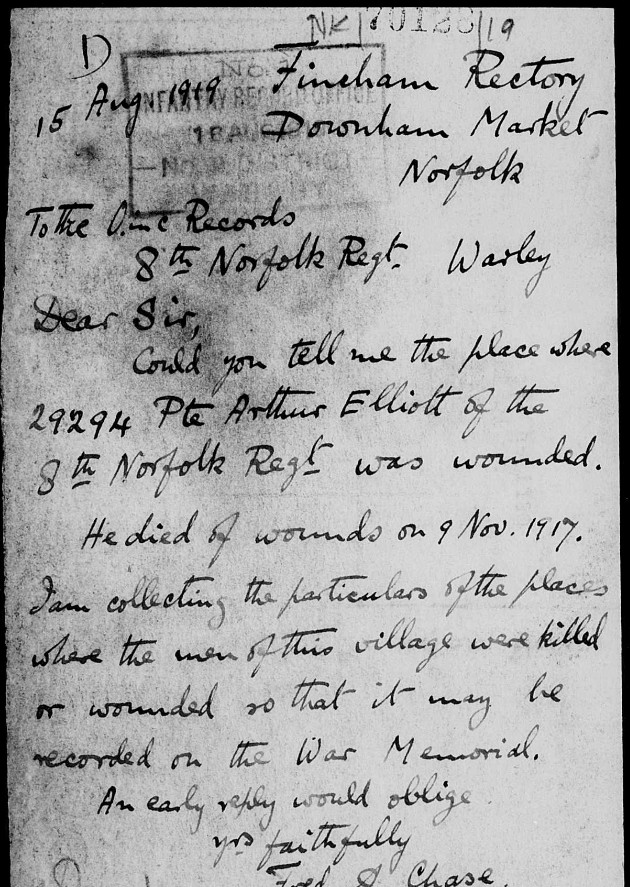 NK/70128/19
D
15 Aug 1919
Fincham Rectory
Downham Market
Norfolk
No.
INFANTRY RECORD OFFICE
18 AUG
To the O. inc Records
8th Norfolk Regt. Warley
Dear Sir,
Could you tell me the place where
29294 Pte Arthur Elliott of the
8th Norfolk Regt was wounded.
He died of wounds on 9 Nov. 1917.
I am collecting the particulars of the places
where the men of this village were killed
or wounded so that it may be
recorded on the War Memorial.
An early reply would oblige.
yrs faithfully
Fred A Chase.